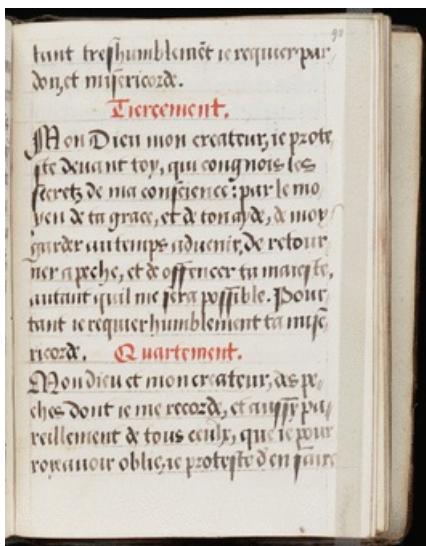 90
tant treshumblemēt ie requier par
don, et misericorde.
Tiercement.
Mon Dieu mon createur, ie prote
ste deuant toy, qui congnois les
secretz de ma conscience: par le mo
yen de ta grace, et de ton ayde, de moy
garder au temps aduenir, de retour
ner a peche, et de offencer ta maieste,
autant quil me sera possible. Pour
tant ie requier humblement ta mise
ricorde. Quartement.
Mon dieu et mon createur, des pe
ches dont ie me recorde, et aussy pa
reillement de tous ceulx, que ie pour
roye auoir oblie, ie proteste d'en faire